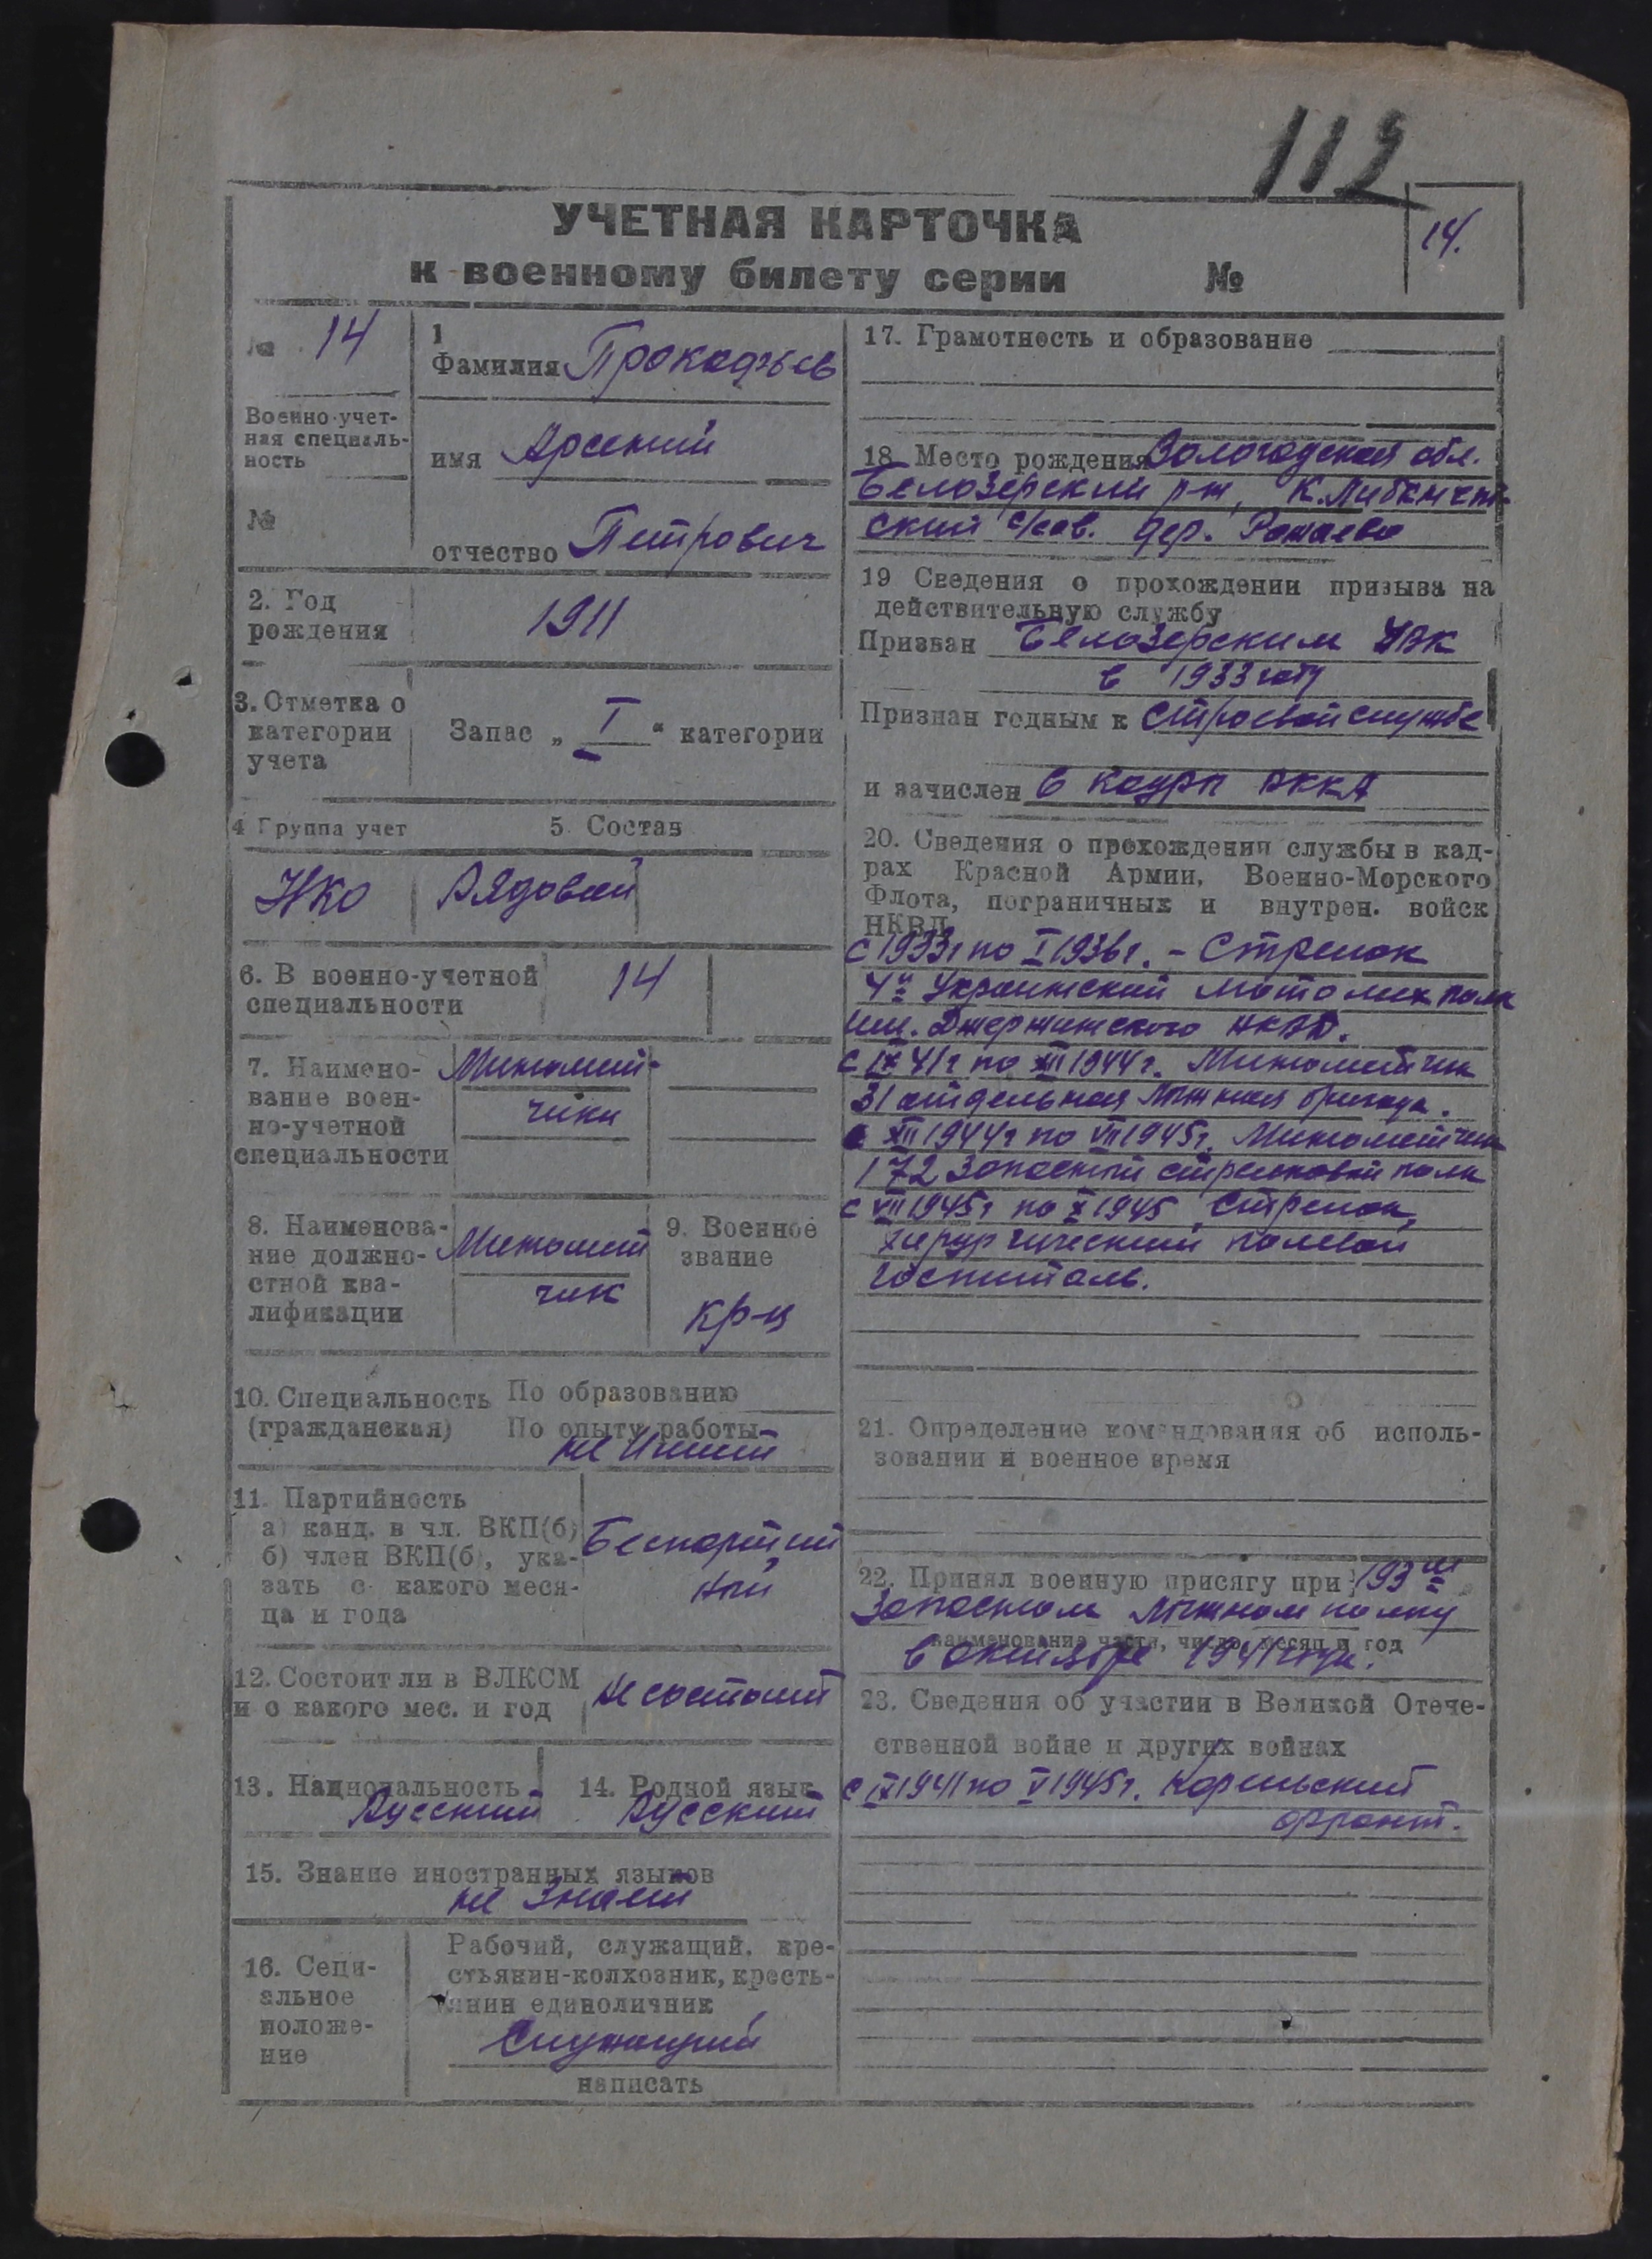 112
УЧЕТНАЯ КАРТОЧКА
14.
к военному билету серии №
№ 14
Военно-учет-
ная специаль-
ность
№
1
Фамилия Прокофьев
имя Арсений
отчество Петрович
2. Год
рождения
1911
3. Отметка о
категории
учета
Запас „ I “ категории
4 Группа учет
5. Состав
НКО
Рядовой
6. В военно-учетной
специальности
14
7. Наимено-
вание воен-
но-учетной
специальности
Миномет-
чики
8. Наименова-
ние должно-
стной ква-
лификации
Миномет
чик
9. Военное
звание
кр-ц
10. Специальность
(гражданская)
По образованию
По опыту работы
не имеет
11. Партийность
а) канд. в чл. ВКП(б)
б) член ВКП(б), ука-
зать с какого меся-
ца и года
Беспартий
ный
12. Состоит ли в ВЛКСМ
и с какого мес. и год
не состоит
13. Национальность
Русский
14. Родной язык
Русский
15. Знание иностранных языков
не знает
16. Соци-
альное
положе-
ние
Рабочий, служащий, кре-
стьянин-колхозник, кресть-
янин единоличник
Служащий
написать
17. Грамотность и образование
18 Место рождения Вологодская обл.
Белозерский р-н, К.
ский с/сов. дер.
19 Сведения о прохождении призыва на
действительную службу
Призван Белозерским РВК
в 1933 году
Признан годным к строевой службе
и зачислен в кадры РККА
20. Сведения о прохождении службы в кад-
рах Красной Армии, Военно-Морского
Флота, пограничных и внутрен. войск
НКВД
с 1933г по I 1936г. - Стрелок
4й Украинский мотомех полк
им. Джержинского НКВД.
с IX 41г по XII 1944г. Минометчик
31 отдельная лыжная бригада.
с XII 1944г по VII 1945г. Минометчик
172 запасный стрелковый полк
с VII 1945г по X 1945, Стрелок,
хирургический полевой
госпиталь.
21. Определение командования об исполь-
зовании в военное время
22. Принял военную присягу при 193м
Запасном лыжном полку
наименование части, число, месяц и год
в октябре 1941 года.
23. Сведения об участии в Великой Отече-
ственной войне и других войнах
с IX 1941 по V 1945г. Корельский
фронт.